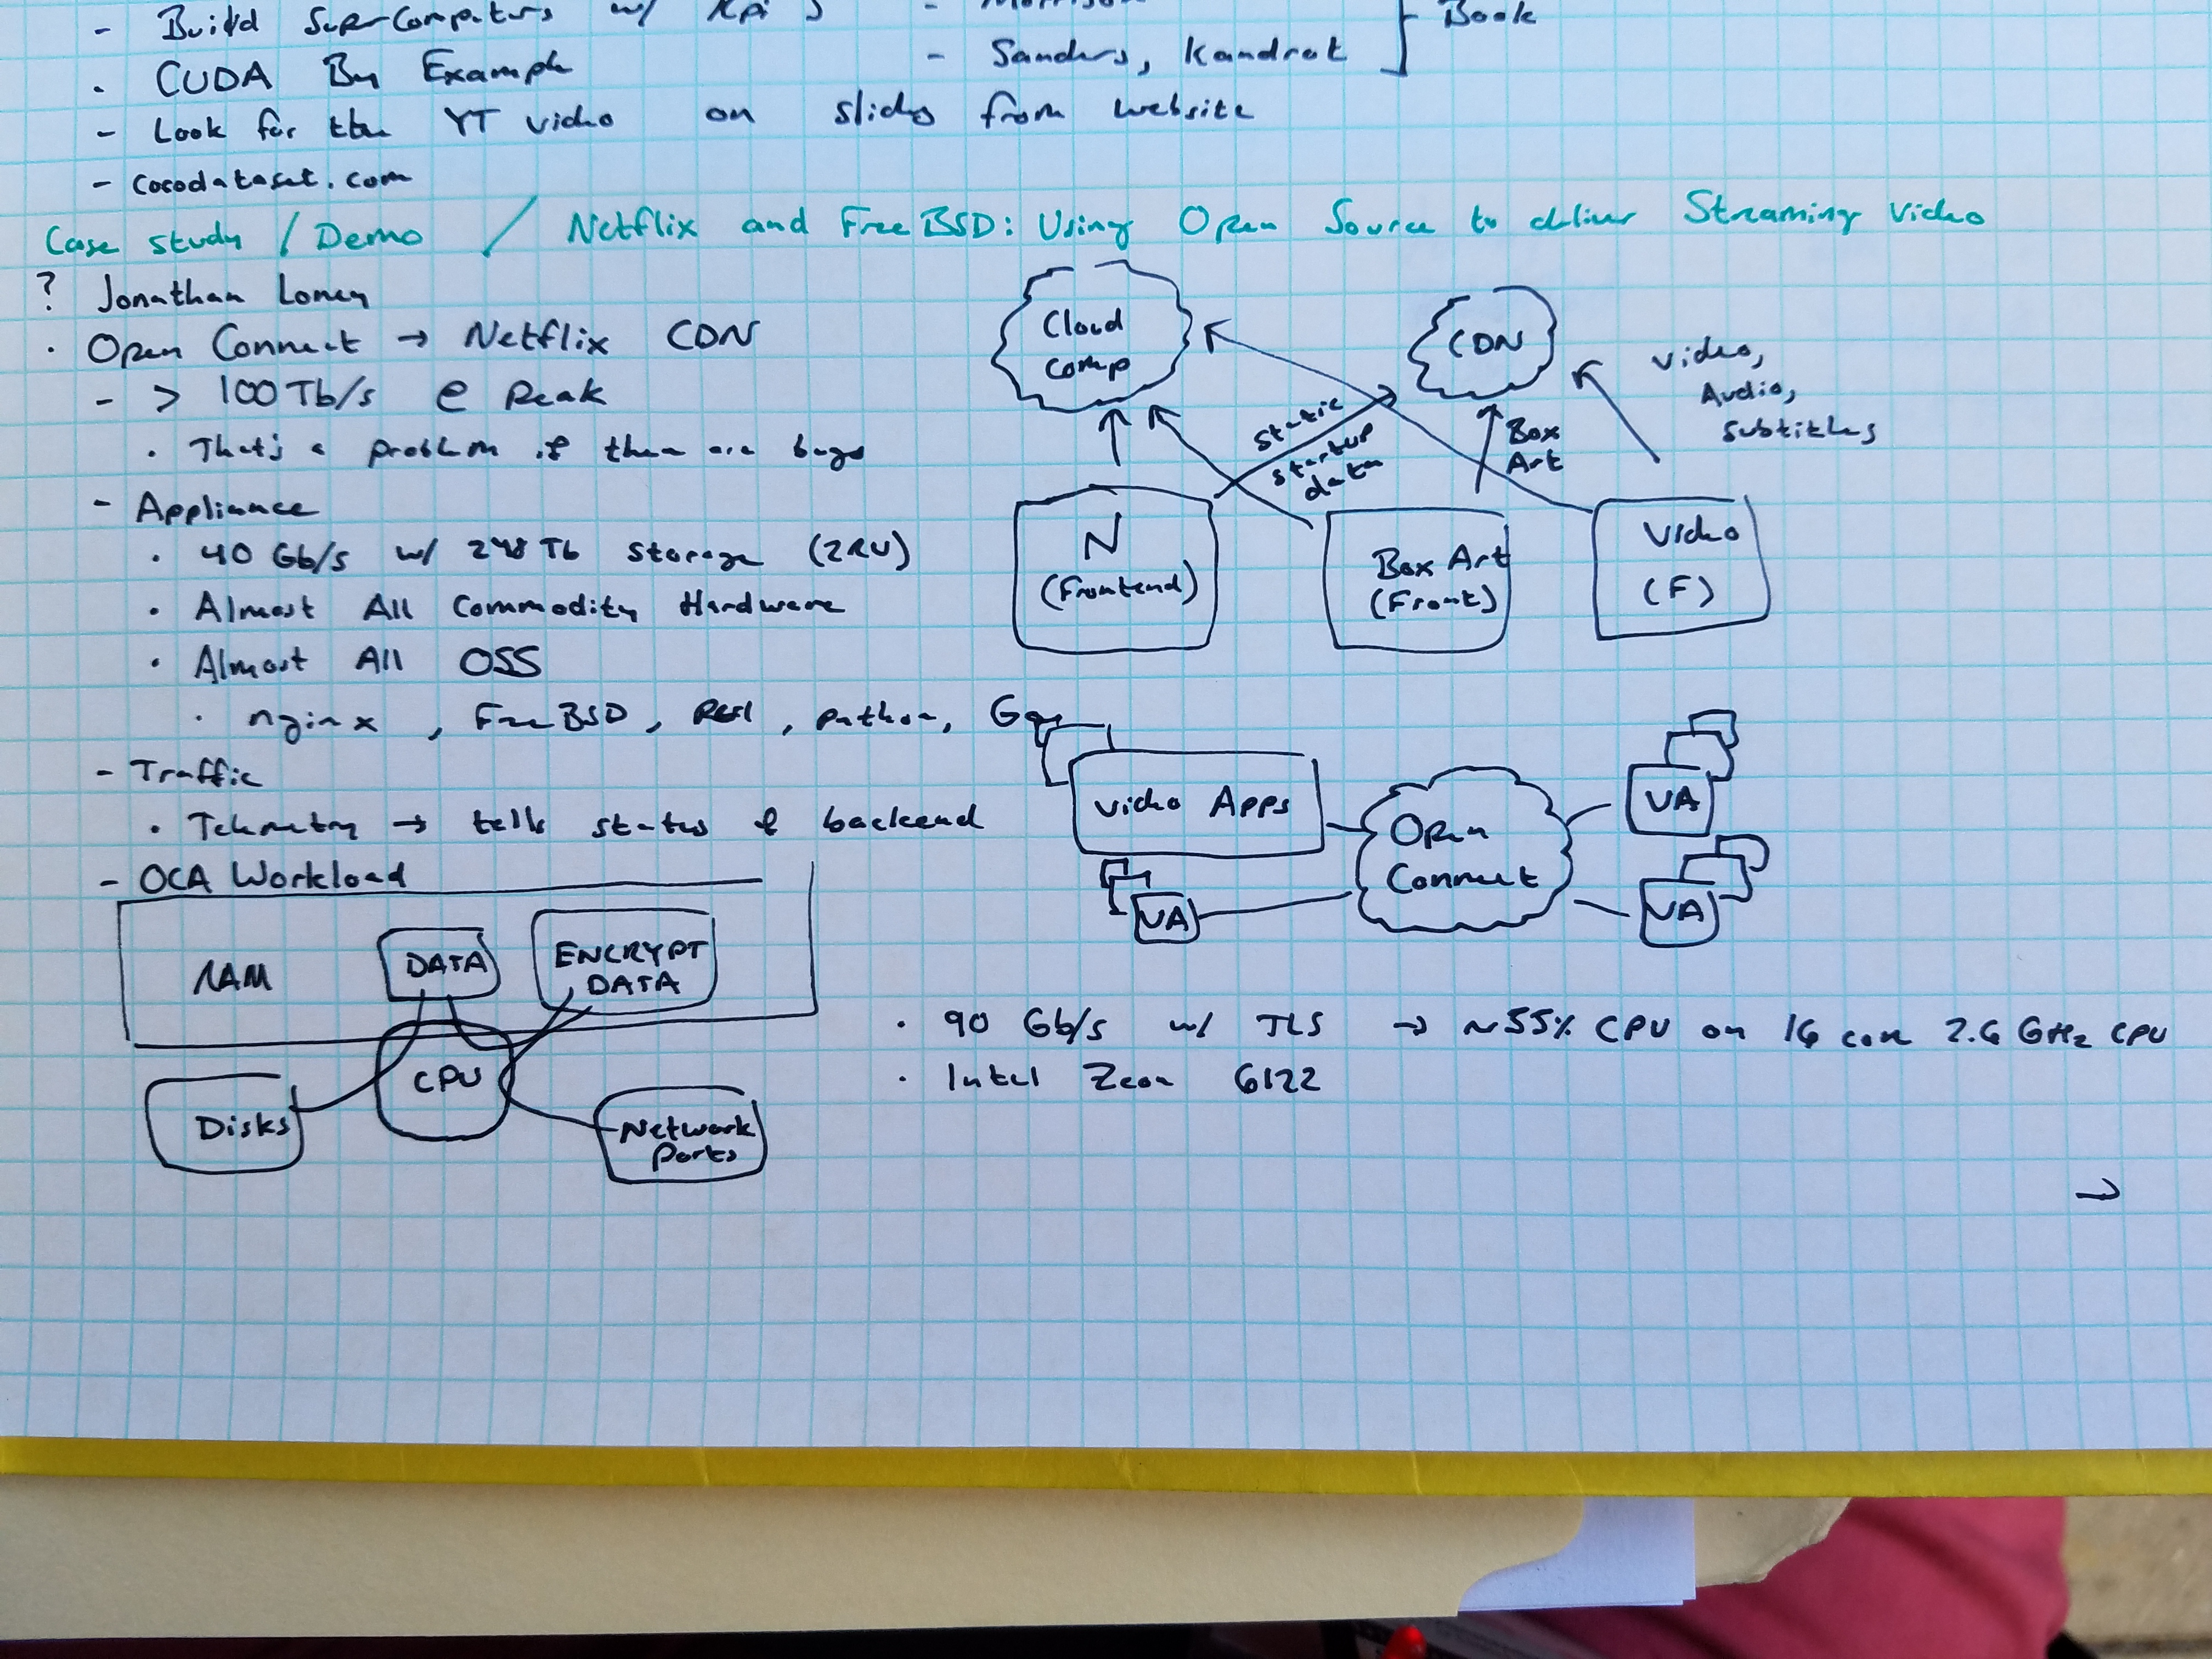 - Build SuperComputers w/ RPi's
· CUDA By Example - Sanders, Kandrot } Book
- Look for the YT video on slides from website
- cocodataset.com
Case study / Demo / Netflix and FreeBSD: Using Open Source to deliver Streaming Video
? Jonathan Looney
· Open Connect → Netflix CDN
- > 100Tb/s @ Peak
· That's a problem if there are bugs
- Appliance
· 40 Gb/s w/ 248 Tb storage (2RU)
· Almost All Commodity Hardware
· Almost All OSS
· nginx, FreeBSD, Perl, python,
- Traffic
· Telemetry → tells status & backend
- OCA Workload
Cloud Comp
CDN
Video, Audio, Subtitles
static startup data
Box Art
N (Frontend)
Box Art (Front)
Video (F)
Video Apps
VA
Open Connect
VA
VA
RAM
DATA
ENCRYPT DATA
Disks
CPU
Network Ports
· 90 Gb/s w/ TLS → ~55% CPU on 16 core 2.6 GHz CPU
· Intel Zeon 6122
→